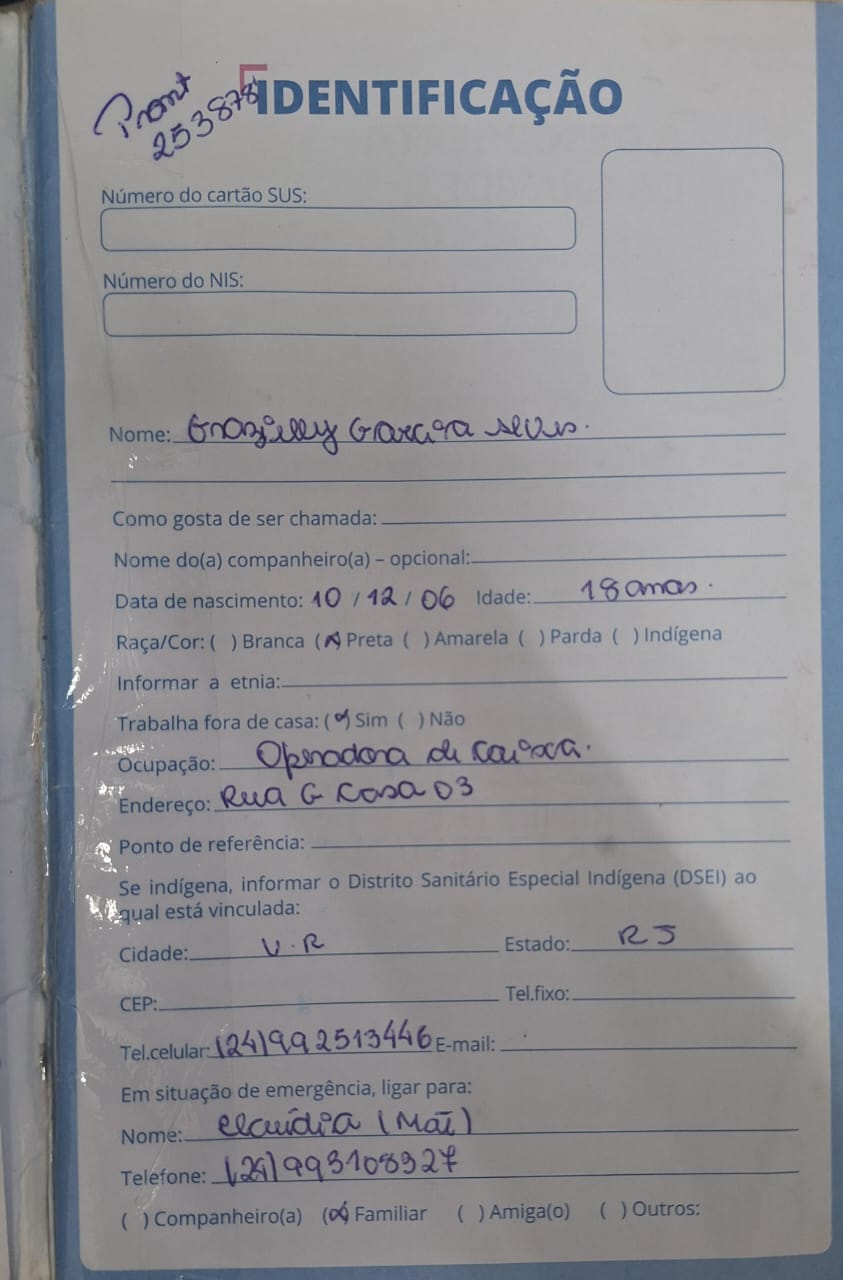 Pront
253878
IDENTIFICAÇÃO
Número do cartão SUS:
Número do NIS:
Nome: Grazielly Garcia Alves.
Como gosta de ser chamada:
Nome do(a) companheiro(a) – opcional:
Data de nascimento: 10 / 12 / 06 Idade: 18 anos.
Raça/Cor: ( ) Branca (X) Preta ( ) Amarela ( ) Parda ( ) Indígena
Informar a etnia:
Trabalha fora de casa: (X) Sim ( ) Não
Ocupação: Operadora de Caixa.
Endereço: Rua G Casa 03
Ponto de referência:
Se indígena, informar o Distrito Sanitário Especial Indígena (DSEI) ao
qual está vinculada:
Cidade: V.R Estado: RJ
CEP: Tel.fixo:
Tel.celular: (24)992513446 E-mail:
Em situação de emergência, ligar para:
Nome: Claúdia (Mãe)
Telefone: (24)993108327
( ) Companheiro(a) (X) Familiar ( ) Amiga(o) ( ) Outros: